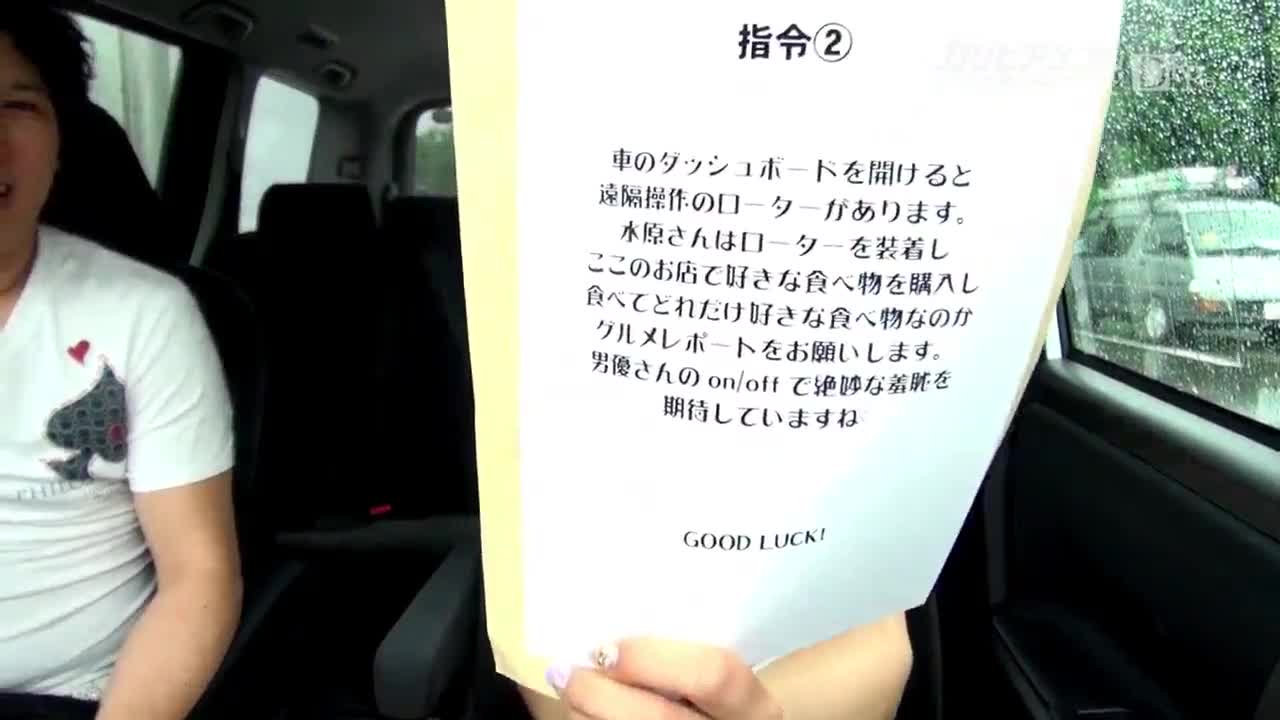 指令②
車のダッシュボードを開けると
遠隔操作のローターがあります。
水原さんはローターを装着し
ここのお店で好きな食べ物を購入し
食べてどれだけ好きな食べ物なのか
グルメレポートをお願いします。
男優さんの on/off で絶妙な羞恥を
期待していますね
GOOD LUCK!